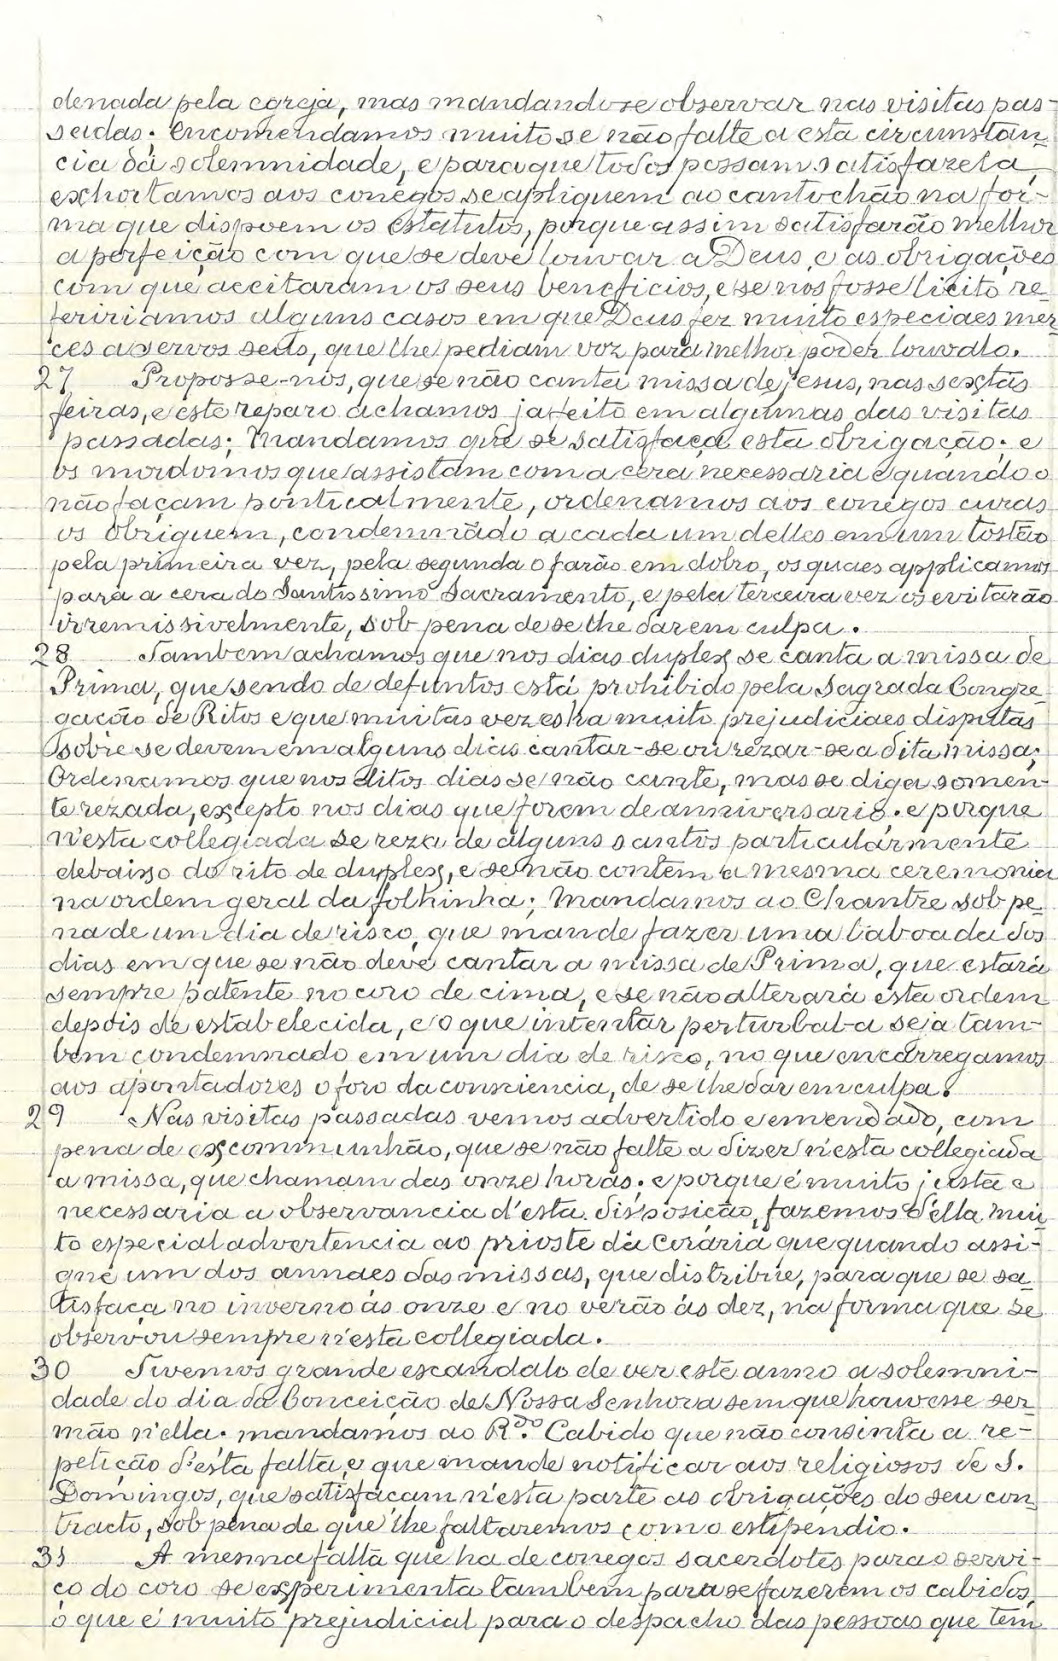 denada pela egreja, mas mandando-se observar nas visitas pas-
sadas: encomendamos muito se não falte a esta circumstan-
cia da solemnidade, e para que todos possam satisfazela,
exhortamos aos conegos se apliquem ao cantochão na for-
ma que dispoem os Estatutos, porque assim satisfarão melhor
a perfeição com que se deve louvar a Deus, e as obrigações
com que acceitaram os seus beneficios, e se nos fosse licito re-
feririamos alguns casos em que Deus fez muito especiaes mer-
ces a servos seus, que lhe pediam voz para melhor poder louvalo.
27 Propos-se-nos, que se não canta missa de Jesus, nas sextas
feiras, e este reparo achamos ja feito em algumas das visitas
passadas; Mandamos que se satisfaça esta obrigação; e
os mordomos que assistam com a cera necessaria e quando o
não façam pontualmente, ordenamos aos conegos curas
os obriguem, condemnãdo a cada um delles em um tostão
pela primeira vez, pela segunda o farão em dobro, os quaes applicamos
para a cera do Santissimo Sacramento, e pela terceira vez os evitarão
irremissivelmente, sob pena de se lhe dar em culpa.
28 Tambem achamos que nos dias duplex se canta a missa de
Prima, que sendo de defuntos está prohibido pela Sagrada Congre-
gação de Ritos e que muitas vezes ha muito prejudiciaes disputas
sobre se devem em alguns dias cantar-se ou rezar-se a dita missa;
Ordenamos que nos ditos dias se não cante, mas se diga somen-
te rezada, excepto nos dias que forem de anniversario. e porque
n'esta collegiada se reza de alguns santos particularmente
debaixo do rito de duplex, e se não contem a mesma ceremonia
na ordem geral da folhinha; Mandamos ao Chantre sob pe-
na de um dia de risco, que mande fazer uma taboada dos
dias em que se não deve cantar a missa de Prima, que estará
sempre patente no coro de cima, e se não alterará esta ordem
depois de estabelecida, e o que intentar perturbala seja tam-
bem condemnado em um dia de risco, no que encarregamos
aos apontadores o foro da consciencia, de se lhe dar em culpa.
29 Nas visitas passadas vemos advertido e emendado, com
pena de excommunhão, que se não falte a dizer n'esta collegiada
a missa, que chamam das onze horas; e porque é muito justa e
necessaria a observancia d'esta disposição, fazemos d'ella mui-
to especial advertencia ao prioste da Coraria que quando assi-
gne um dos annaes das missas, que distribue, para que se sa-
tisfaça no inverno ás onze e no verão ás dez, na forma que se
observou sempre n'esta collegiada.
30 Tivemos grande escandalo de ver este anno a solemni-
dade do dia da Conceição de Nossa Senhora sem que houvesse ser-
mão n'ella. mandamos ao R.do Cabido que não consinta a re-
petição d'esta falta, e que mande notificar aos religiosos de S.
Domingos, que satisfaçam n'esta parte as obrigações do seu con-
tracto, sob pena de que lhe faltaremos com o estipendio.
31 A mesma falta que ha de conegos sacerdotes para o servi-
ço do coro se experimenta tambem para se fazerem os cabidos,
o que é muito prejudicial para o despacho das pessoas que tem